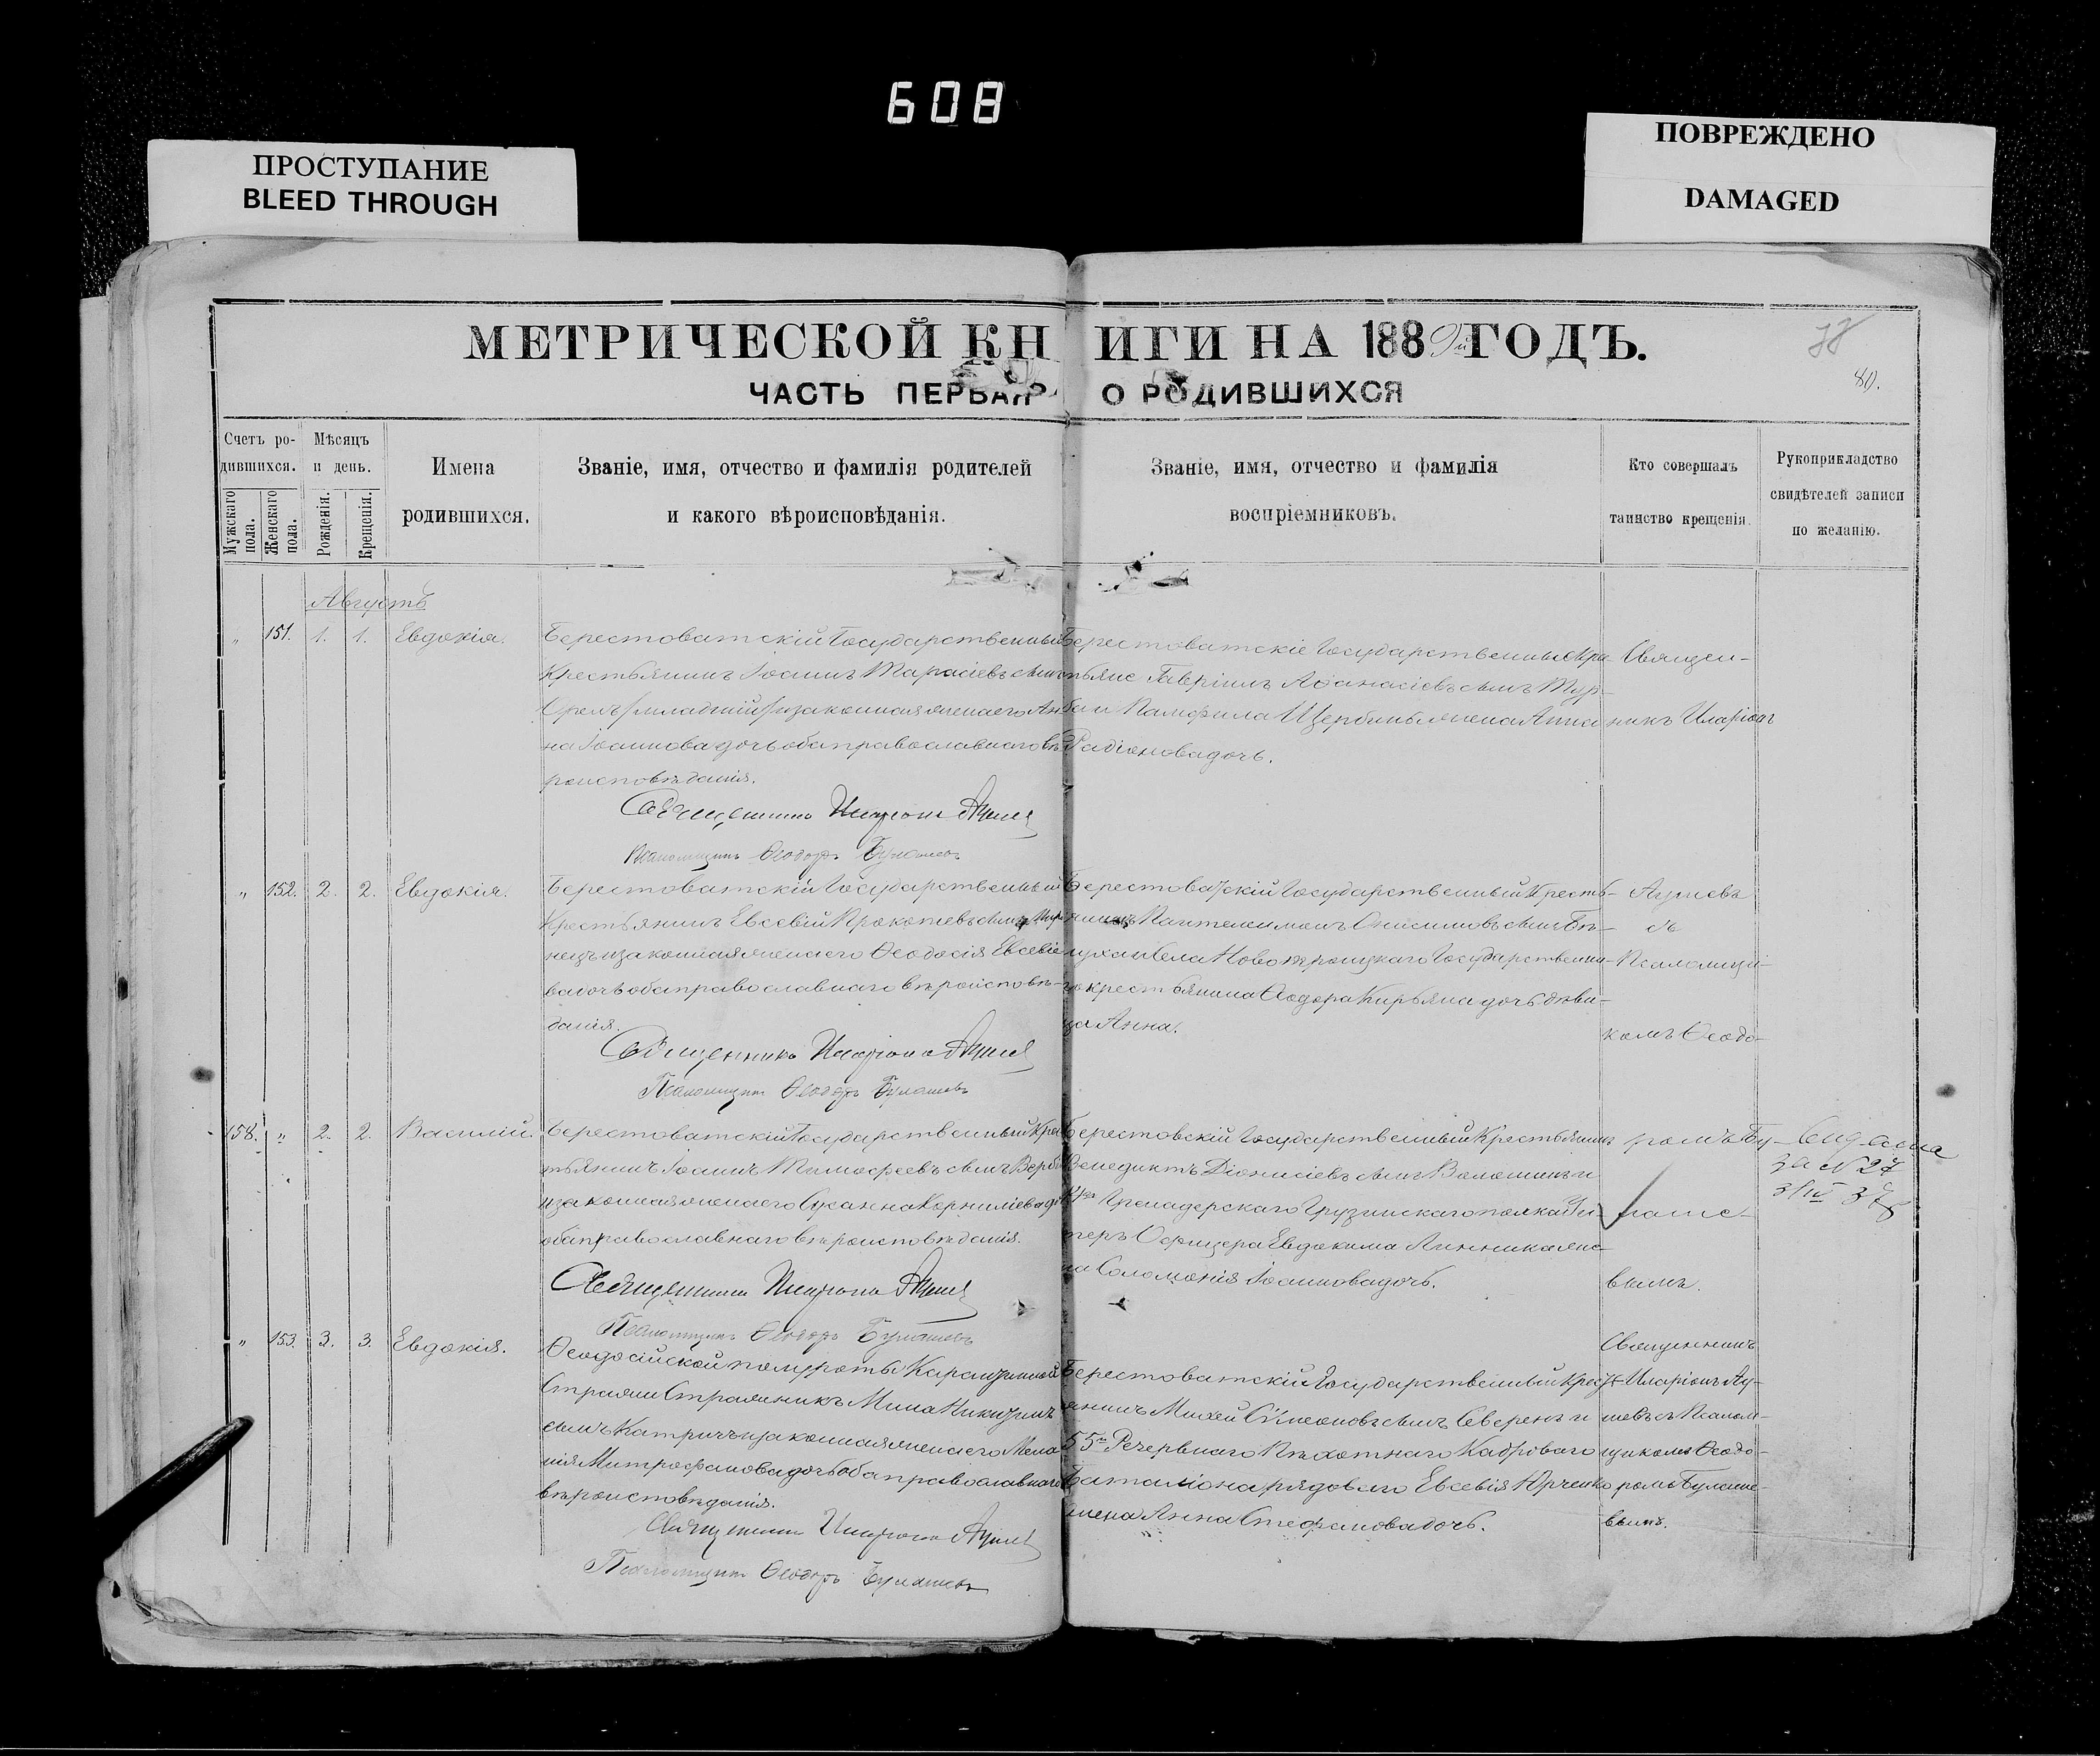 608
ПРОСТУПАНИЕ
BLEED THROUGH
ПОВРЕЖДЕНО
DAMAGED
МЕТРИЧЕСКОЙ КНИГИ НА 1889й ГОДЪ.
80.
ЧАСТЬ ПЕРВАЯ О РОДИВШИХСЯ
Счетъ родившихся.
Мужскаго пола.
Женскаго пола.
Мѣсяцъ и день.
Рожденія.
Крещенія.
Имена
родившихся.
Званіе, имя, отчество и фамилія родителей
и какого вѣроисповѣданія.
Званіе, имя, отчество и фамилія
воспріемниковъ.
Кто совершалъ
таинство крещенія.
Рукоприкладство
свидѣтелей записи
по желанію.
Августъ
„ 151. 1. 1. Евдокія.
Берестоватскій Государственный
Крестьянинъ Іоаннъ Тарасіевъ сынъ
/младшій/ и законная жена его Ан-
на Іоаннова дочь оба православнаго вѣ-
роисповѣданія.
Священникъ Иларіонъ
Псаломщикъ Ѳеодоръ Булашевъ
Берестоватскіе Государственные Кре-
стьяне Гавріилъ Аѳанасіевъ сынъ
и Памфила Щербины жена Анна
Радіонова дочь.
Священ-
никъ Иларіонъ
„ 152. 2. 2. Евдокія.
Берестоватскій Государственный
Крестьянинъ Евсевій Прокопіевъ сынъ
нецъ и законная жена его Ѳеодосія Евсевіе-
ва дочь оба православнаго вѣроисповѣ-
данія.
Священникъ Иларіонъ
Псаломщикъ Ѳеодоръ Булашевъ
Берестоватскій Государственный Кресть-
янинъ Пантелеимонъ Онисимовъ сынъ Бѣ-
луха и села Новотроицкаго Государственна-
го крестьянина Ѳеодора Кирьяна дочь дѣви-
ца Анна.
съ
Псаломщи-
комъ Ѳеодо-
158. „ 2. 2. Василій.
Берестоватскій Государственный Кре-
стьянинъ Іоаннъ Тимофеевъ сынъ
и законная жена его Сусанна Корниліева
оба православнаго вѣроисповѣданія.
Священникъ Иларіонъ
Псаломщикъ Ѳеодоръ Булашевъ
Берестовскій Государственный Крестьянинъ
Венедиктъ Діонисіевъ сынъ Волошинъ и
Гренадерскаго Грузинскаго полка Ун-
теръ Офицера Евдокима Линника же-
на Соломонія Іоаннова дочь.
ромъ Бу-
лаше-
вымъ.
за N 27
„ 153. 3. 3. Евдокія.
Ѳеодосійской полуроты Карантинной
Стражи Стражникъ Мина Никитинъ
сынъ Катричъ и законная жена его Мела-
нія Митрофанова дочь оба православнаго
вѣроисповѣданія.
Священникъ Иларіонъ
Псаломщикъ Ѳеодоръ Булашевъ
Берестоватскій Государственный Крест-
янинъ Михей Сѷмеоновъ сынъ Северенъ и
55го Резервнаго Пѣхотнаго Кадроваго
Баталіона рядоваго Евсевія Юрченко
жена Анна Стефанова дочь.
Священникъ
Иларіонъ
съ Псалом-
щикомъ Ѳеодо-
ромъ Булаше-
вымъ.